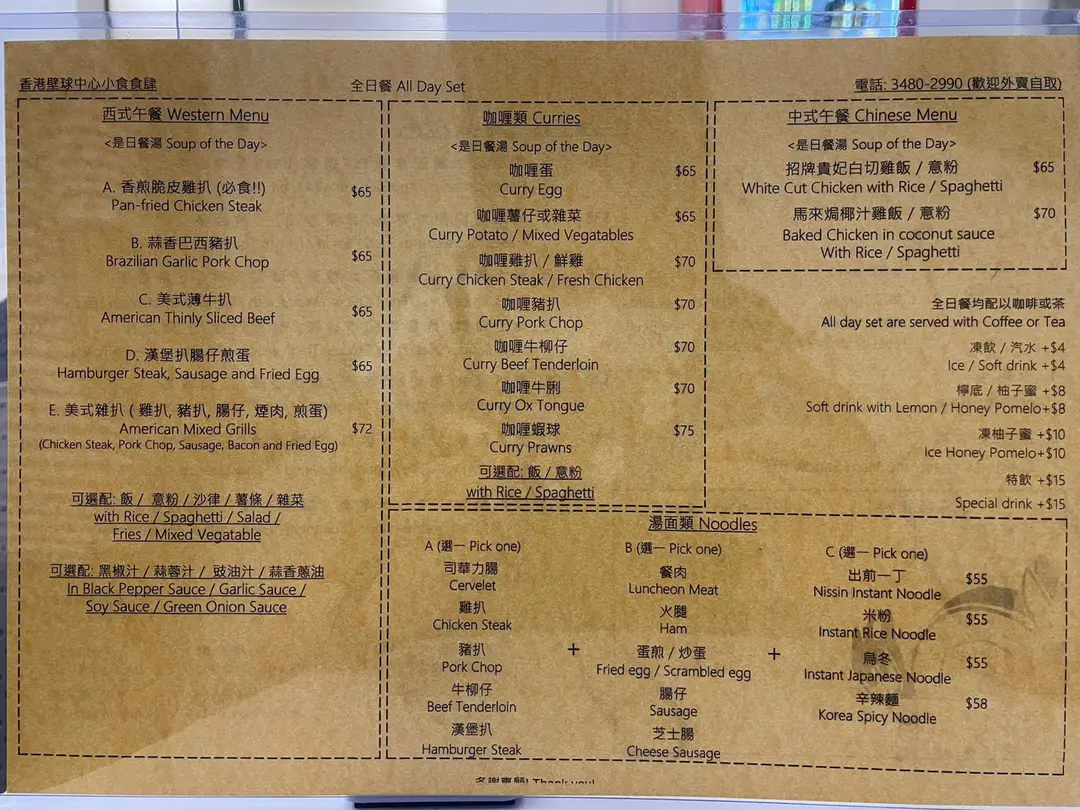 香港壁球中心小食食肆
全日餐 All Day Set
電話: 3480-2990 (歡迎外賣自取)
西式午餐 Western Menu
<是日餐湯 Soup of the Day>
A. 香煎脆皮雞扒 (必食!!)
Pan-fried Chicken Steak
$65
B. 蒜香巴西豬扒
Brazilian Garlic Pork Chop
$65
C. 美式薄牛扒
American Thinly Sliced Beef
$65
D. 漢堡扒腸仔煎蛋
Hamburger Steak, Sausage and Fried Egg
$65
E. 美式雜扒 ( 雞扒, 豬扒, 腸仔, 煙肉, 煎蛋)
American Mixed Grills
$72
(Chicken Steak, Pork Chop, Sausage, Bacon and Fried Egg)
可選配: 飯 / 意粉 / 沙律 / 薯條 / 雜菜
with Rice / Spaghetti / Salad /
Fries / Mixed Vegatable
可選配: 黑椒汁 / 蒜蓉汁 / 豉油汁 / 蒜香蔥油
In Black Pepper Sauce / Garlic Sauce /
Soy Sauce / Green Onion Sauce
咖喱類 Curries
<是日餐湯 Soup of the Day>
咖喱蛋
$65
Curry Egg
咖喱薯仔或雜菜
$65
Curry Potato / Mixed Vegatables
咖喱雞扒 / 鮮雞
$70
Curry Chicken Steak / Fresh Chicken
咖喱豬扒
$70
Curry Pork Chop
咖喱牛柳仔
$70
Curry Beef Tenderloin
咖喱牛脷
$70
Curry Ox Tongue
咖喱蝦球
$75
Curry Prawns
可選配: 飯 / 意粉
with Rice / Spaghetti
中式午餐 Chinese Menu
<是日餐湯 Soup of the Day>
招牌貴妃白切雞飯 / 意粉
$65
White Cut Chicken with Rice / Spaghetti
馬來焗椰汁雞飯 / 意粉
$70
Baked Chicken in coconut sauce
With Rice / Spaghetti
全日餐均配以咖啡或茶
All day set are served with Coffee or Tea
凍飲 / 汽水 +$4
Ice / Soft drink +$4
檸底 / 柚子蜜 +$8
Soft drink with Lemon / Honey Pomelo+$8
凍柚子蜜 +$10
Ice Honey Pomelo+$10
特飲 +$15
Special drink +$15
湯面類 Noodles
A (選一 Pick one)
司華力腸
Cervelet
雞扒
Chicken Steak
豬扒
Pork Chop
牛柳仔
Beef Tenderloin
漢堡扒
Hamburger Steak
+
B (選一 Pick one)
餐肉
Luncheon Meat
火腿
Ham
蛋煎 / 炒蛋
Fried egg / Scrambled egg
腸仔
Sausage
芝士腸
Cheese Sausage
+
C (選一 Pick one)
出前一丁
$55
Nissin Instant Noodle
米粉
$55
Instant Rice Noodle
烏冬
$55
Instant Japanese Noodle
辛辣麵
$58
Korea Spicy Noodle
多謝惠顧! Thank you!